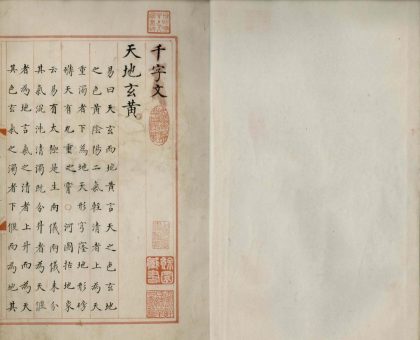 千字文
天地玄黃
易曰天玄而地黃言天之色玄地
之色黃陰陽二氣輕清者上為天
重濁者下為地天形穹蔭地形
天有九重之霄○河圖括地象
云易有太極是生兩儀兩儀未分
其氣混沌清濁既分升者為天偃
者為地言氣之清者上升而為天
其色玄氣之濁者下偃而為地其